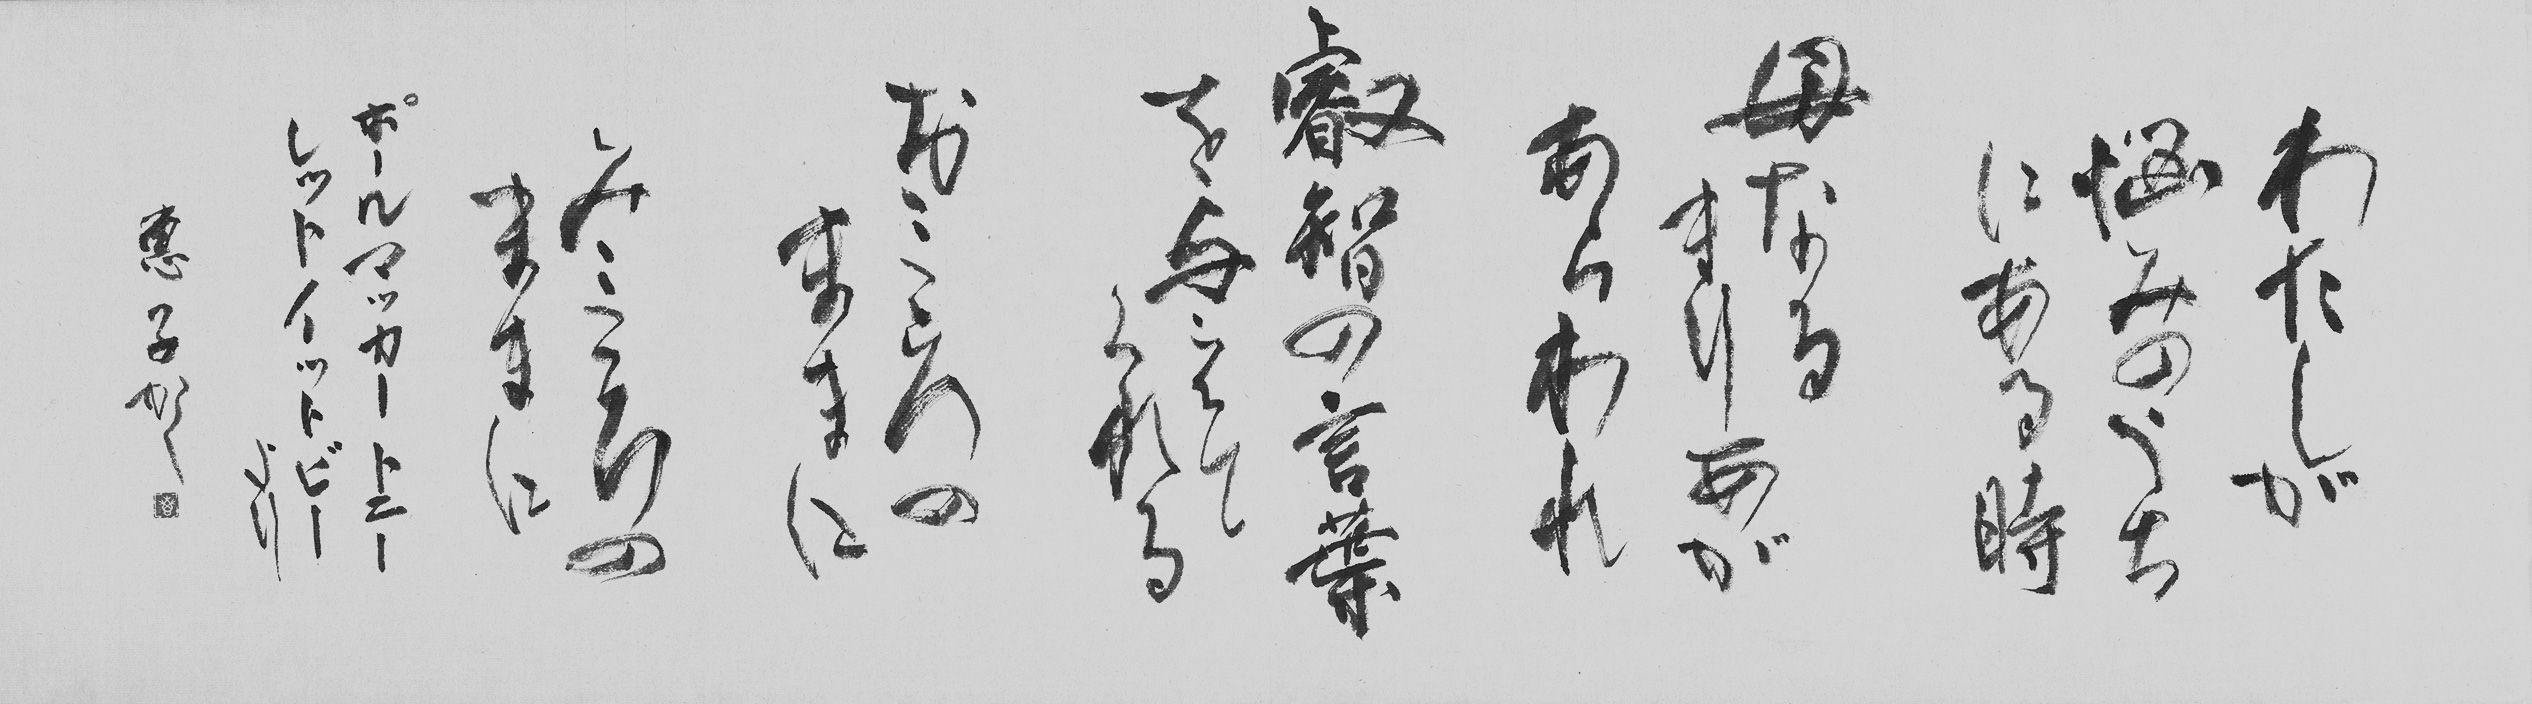 わたしが
悩みのうち
にある時
母なる
まりあが
あらわれ
叡智の言葉
を与えて
くれる
おこころの
ままに
みこころの
ままに
ポールマッカートニー
レットイットビー
より
恵子かく